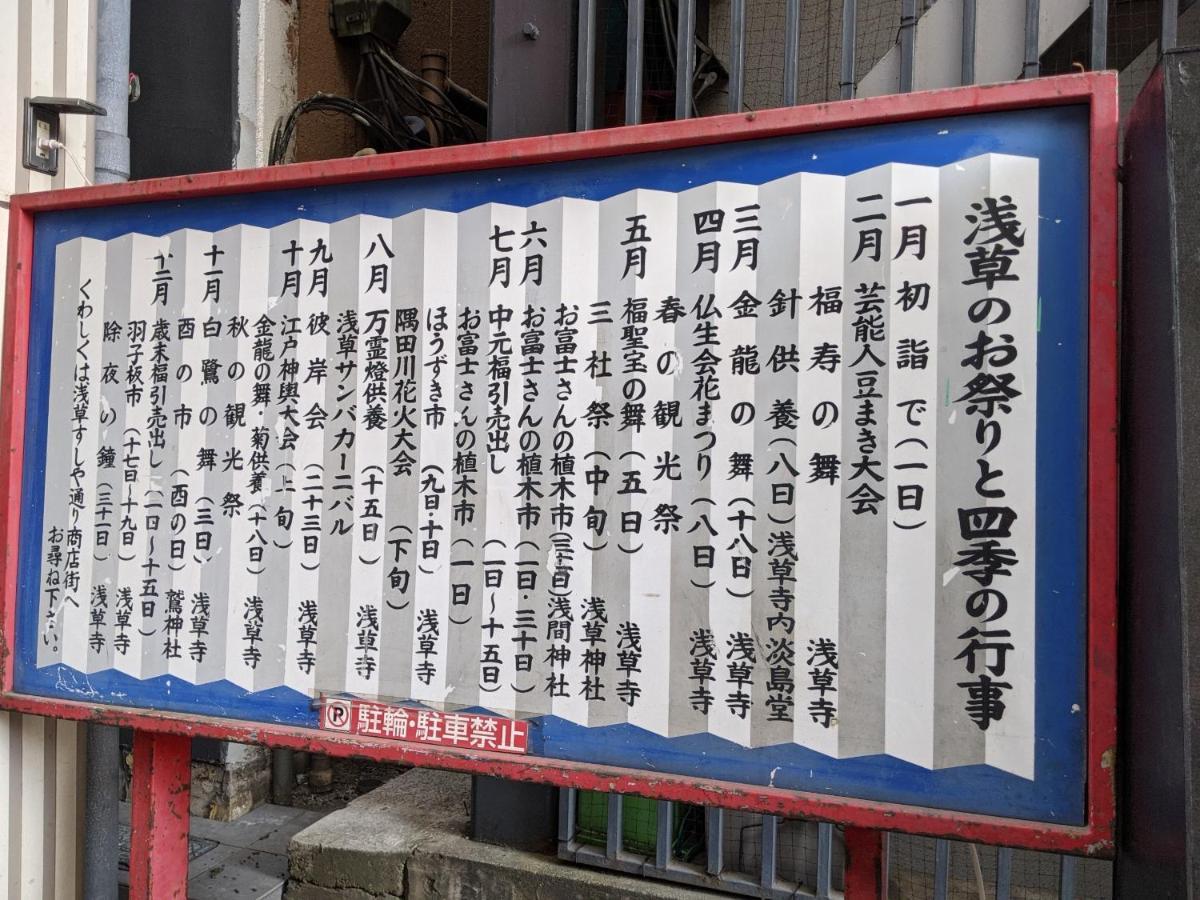 浅草のお祭りと四季の行事
一月 初詣で(一日)
二月 芸能人豆まき大会
福寿の舞 浅草寺
針供養(八日)浅草寺内淡島堂
三月 金龍の舞(十八日) 浅草寺
四月 仏生会花まつり(八日) 浅草寺
春の観光祭
五月 福聖宝の舞(五日) 浅草寺
三社祭(中旬) 浅草神社
お富士さんの植木市(三十・三十一日)浅間神社
六月 お富士さんの植木市(一日・三十日)
七月 中元福引売出し(一日〜十五日)
お富士さんの植木市(一日)
ほうずき市(九日・十日) 浅草寺
隅田川花火大会(下旬)
八月 万霊燈供養(十五日) 浅草寺
浅草サンバカーニバル
九月 彼岸会(二十三日) 浅草寺
十月 江戸神輿大会(上旬)
金龍の舞・菊供養(十八日) 浅草寺
秋の観光祭
十一月 白鷺の舞(三日) 浅草寺
酉の市(酉の日) 鷲神社
十二月 歳末福引売出し(一日〜十五日)
羽子板市(十七日〜十九日) 浅草寺
除夜の鐘(三十一日) 浅草寺
くわしくは浅草すしや通り商店街へ
お尋ね下さい。
駐輪・駐車禁止